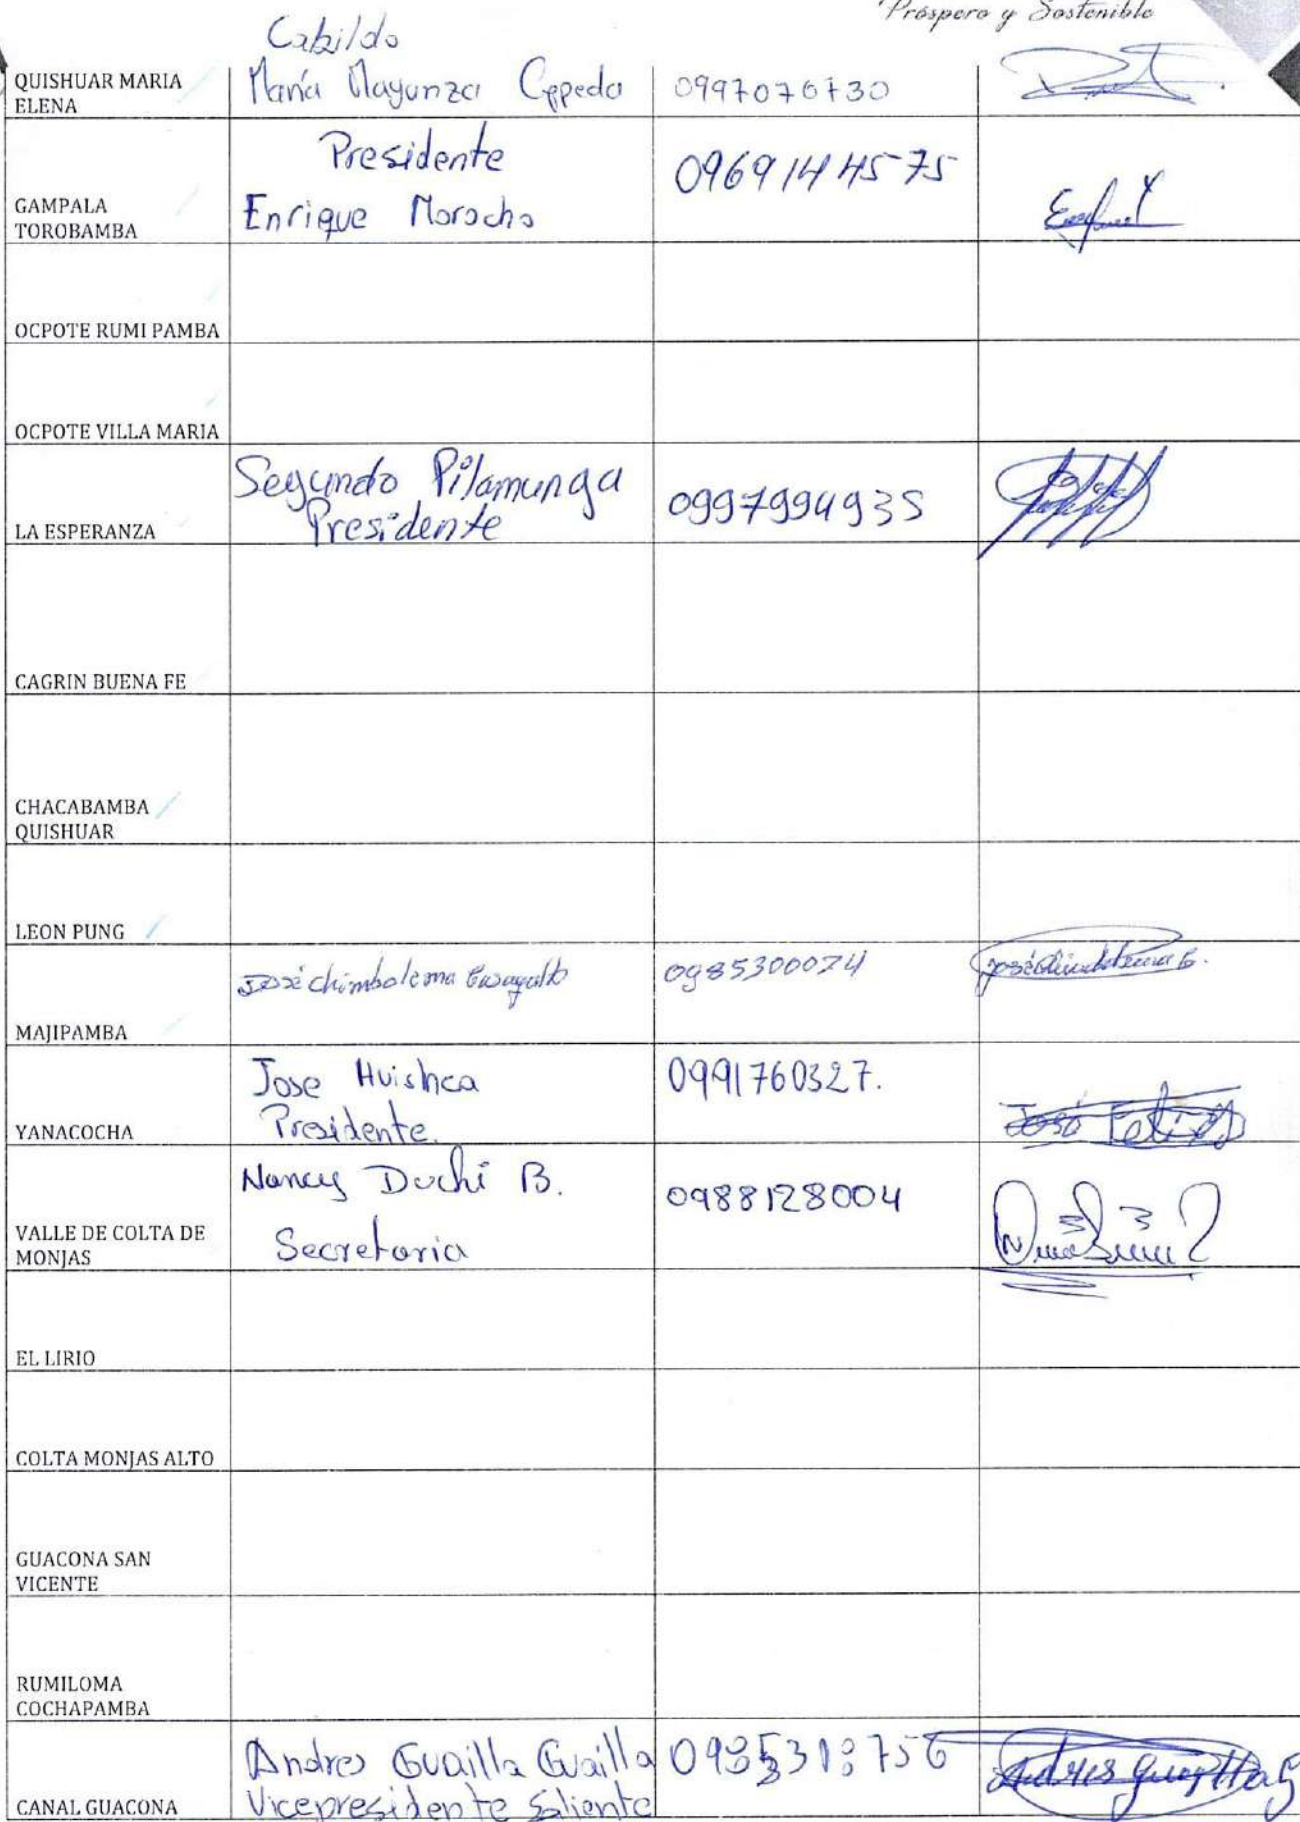 Próspero y Sostenible
Cabildo
QUISHUAR MARIA
ELENA
María Mayunza Cepeda
0997076730
Presidente
GAMPALA
TOROBAMBA
Enrique Morocho
0969144575
OCPOTE RUMI PAMBA
OCPOTE VILLA MARIA
LA ESPERANZA
Segundo Pilamunga
Presidente
0997994935
CAGRIN BUENA FE
CHACABAMBA
QUISHUAR
LEON PUNG
MAJIPAMBA
José Chimbolema
0985300074
YANACOCHA
Jose Huishca
Presidente.
0991760327.
José
VALLE DE COLTA DE
MONJAS
Nancy Duchi B.
Secretaria
0988128004
EL LIRIO
COLTA MONJAS ALTO
GUACONA SAN
VICENTE
RUMILOMA
COCHAPAMBA
CANAL GUACONA
Andres Guailla Guailla
Vicepresidente Saliente